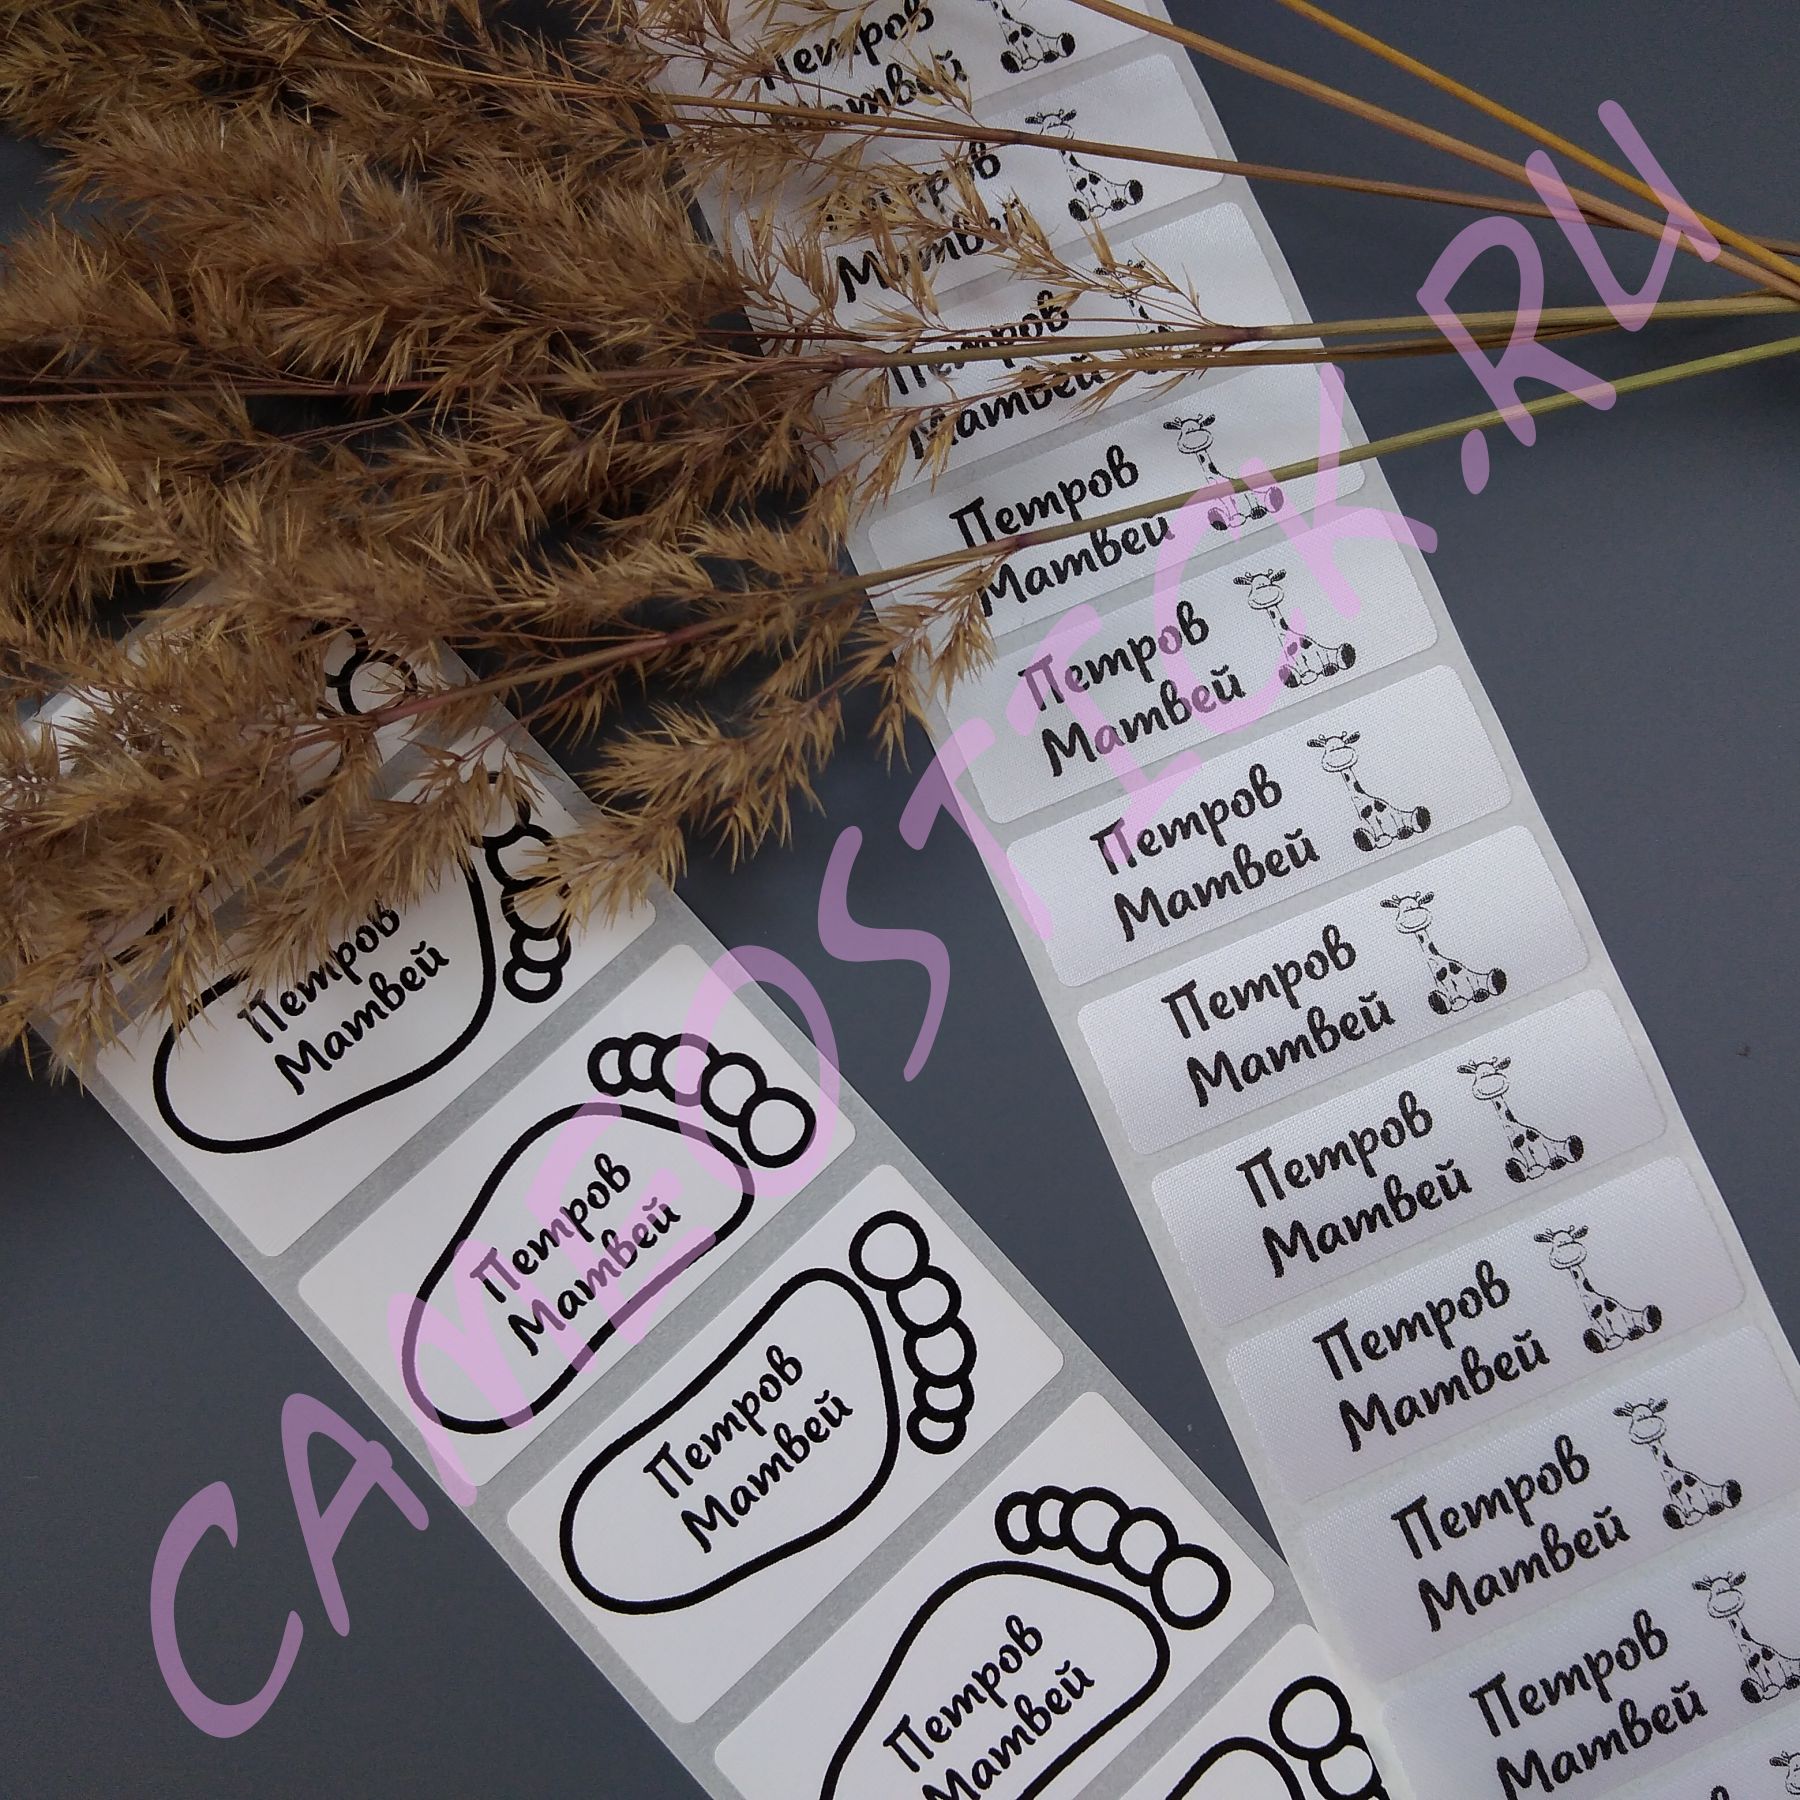 Петров
Матвей
Петров
Матвей
Петров
Матвей
Петров
Матвей
Петров
Матвей
Петров
Матвей
Петров
Матвей
Петров
Матвей
Петров
Матвей
Петров
Матвей
Петров
Матвей
Петров
Матвей
Петров
Матвей
Петров
Матвей
Петров
Матвей
CAMEOSTICK.RU